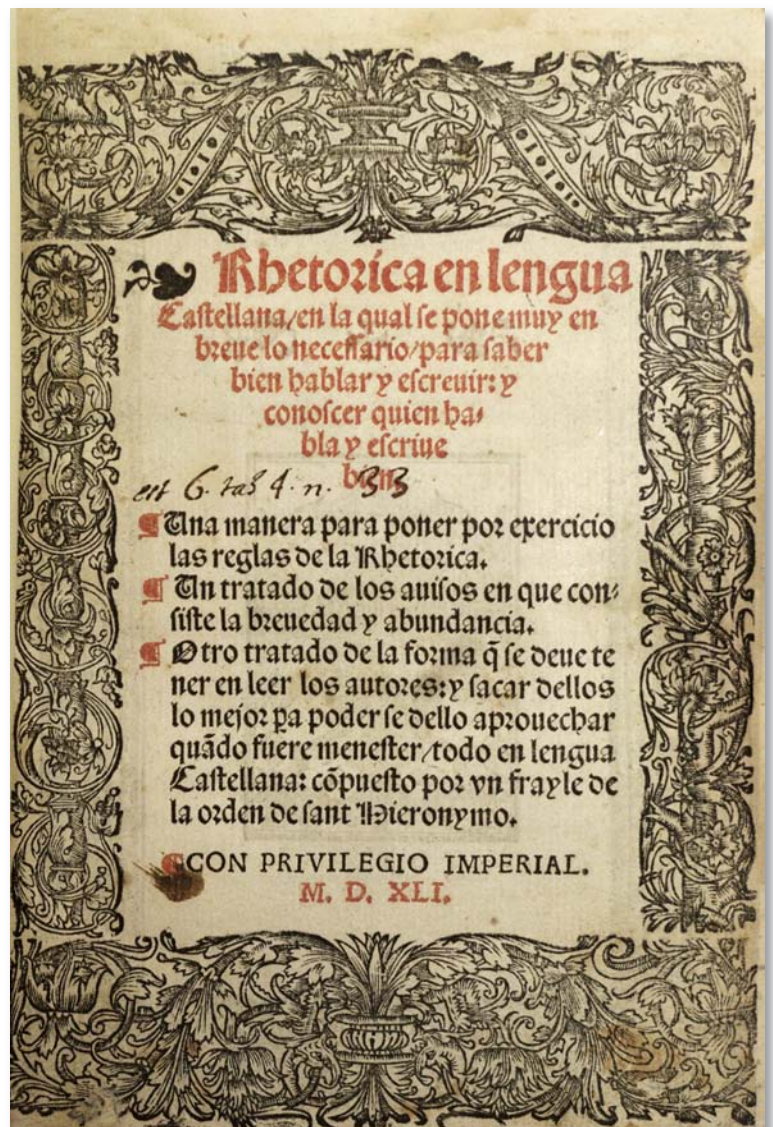 Rhetorica en lengua
Castellana/en la qual se pone muy en
breue lo necessario/para saber
bien hablar y escreuir: y
conoscer quien ha-
bla y escriue
bien.
est 6. 4. n. 33
¶ Una manera para poner por exercicio
las reglas de la Rhetorica.
¶ Un tratado de los auisos en que con-
siste la breuedad y abundancia.
¶ Otro tratado de la forma q̃ se deue te
ner en leer los autores: y sacar dellos
lo mejor ꝑa poder se dello aprouechar
quãdo fuere menester/todo en lengua
Castellana: cõpuesto por vn frayle de
la orden de sant Hieronymo.
¶CON PRIVILEGIO IMPERIAL.
M. D. XLI.